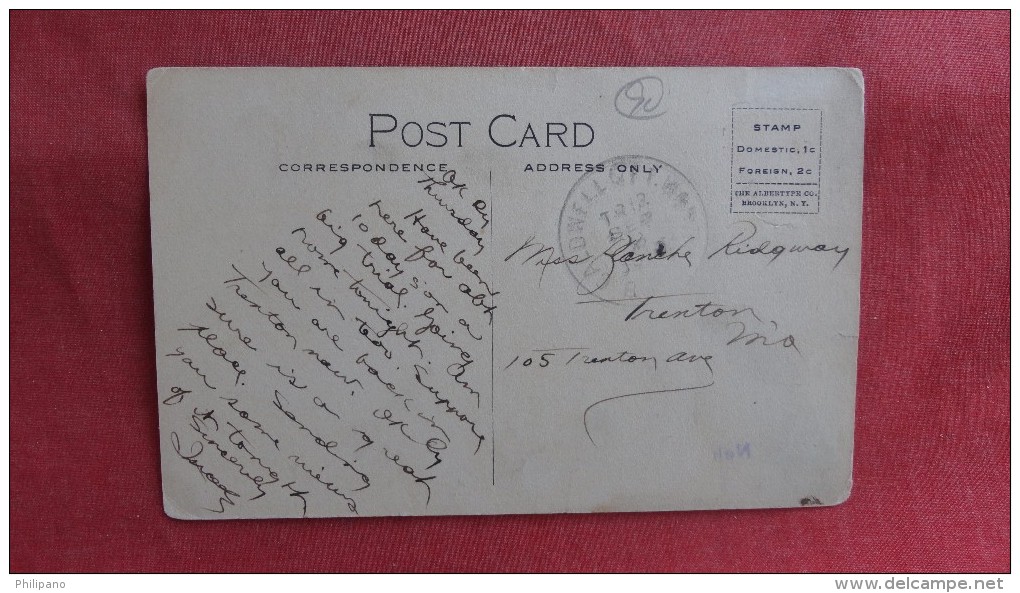 90
POST CARD
CORRESPONDENCE
ADDRESS ONLY
STAMP
DOMESTIC, 1C
FOREIGN, 2C
THE ALBERTYPE CO.
BROOKLYN, N. Y.
Thursday
Have been
here for abt
10 days on a
big trial. Going
home tonight. am
all in too. Suppose
you are back in
Trenton now. Ok Cy
sure is a great
place. Sending
you some views
of it tonight
Sincerely
Miss Blanche Ridgway
Trenton
Mo
105 Trenton ave
Philipano
www.delcampe.net